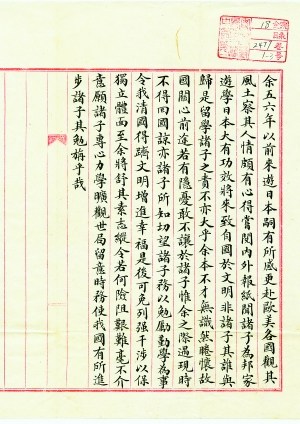 余五六年以前來遊日本嗣有所感更赴歐美各國觀其
風土察人情頗有心得嘗閱內外報紙聞諸子為邦家
遊學日本大有功效將來致自國於文明非諸子其誰與
歸是留學諸子之責不亦大乎余本不才無識然睠懷故
國關心前途若有隱憂敢不讓於諸子惟余之際遇現時
不得回國諒亦諸子所知切望諸子務以勉勵勤學為事
令我清國得躋文明增進幸福是後可免列强干涉以保
獨立體面至余將舒其素志縱令若何險阻艱難毫不介
意願諸子專心力學曠觀世局留意時務使我國有所進
步諸子其勉旃乎哉